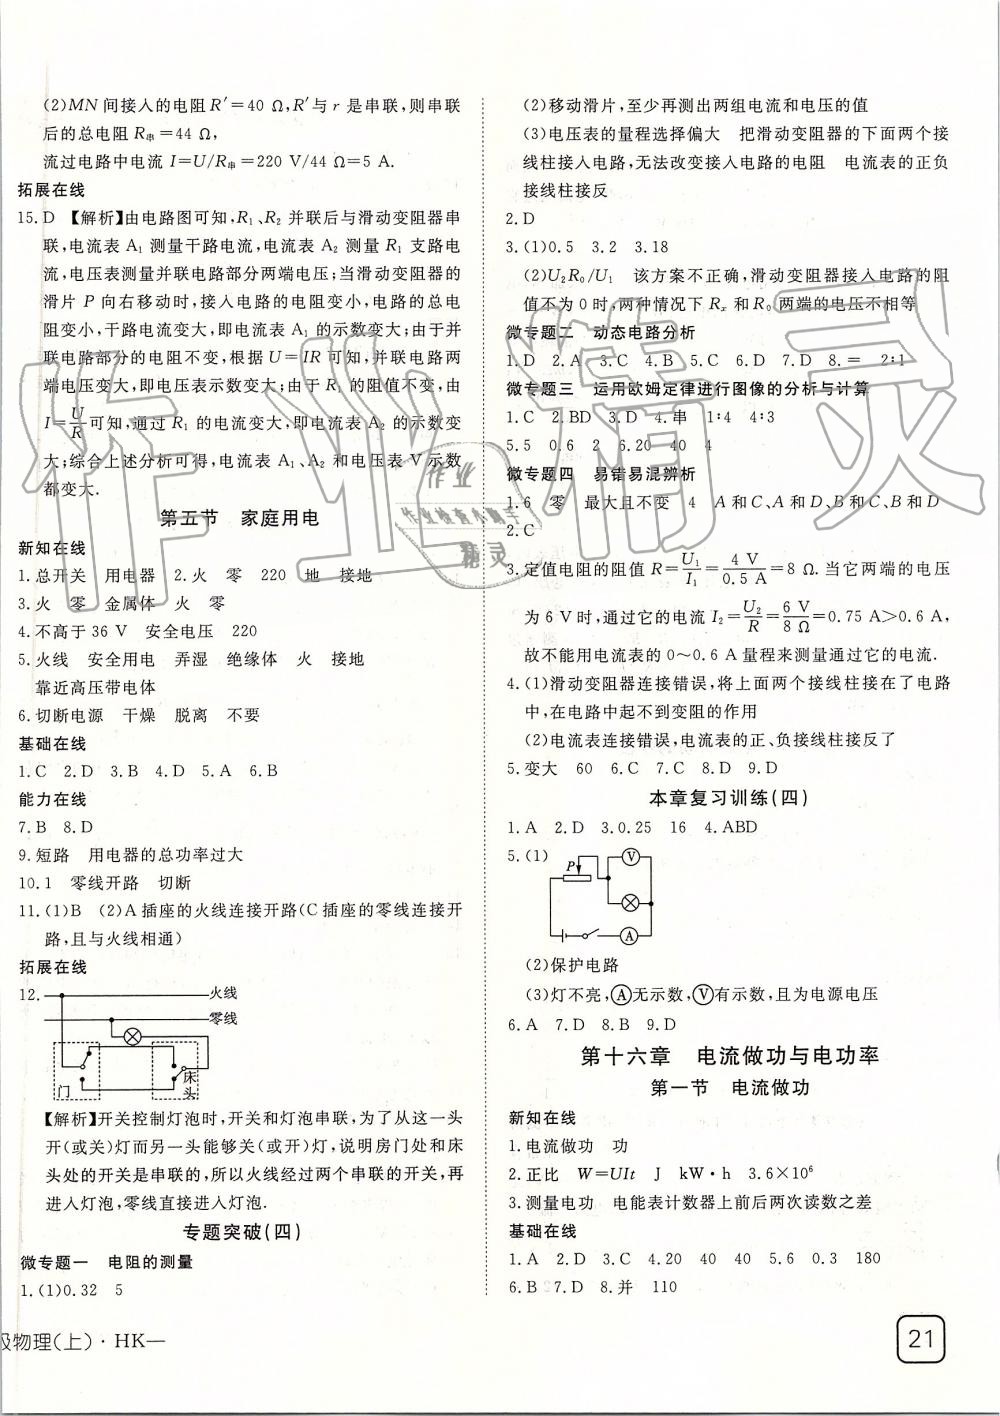 (2)MN 间接入的电阻 R′=40 Ω,R′与 r 是串联,则串联
后的总电阻 R串=44 Ω,
流过电路中电流 I=U/R串=220 V/44 Ω=5 A.
拓展在线
15.D 【解析】由电路图可知,R₁、R₂ 并联后与滑动变阻器串
联,电流表 A₁ 测量干路电流,电流表 A₂ 测量 R₁ 支路电
流,电压表测量并联电路部分两端电压;当滑动变阻器的
滑片 P 向右移动时,接入电路的电阻变小,电路的总电
阻变小,干路电流变大,即电流表 A₁ 的示数变大;由于并
联电路部分的电阻不变,根据 U=IR 可知,并联电路两
端电压变大,即电压表示数变大;由于 R₁ 的阻值不变,由
I=U/R可知,通过 R₁ 的电流变大,即电流表 A₂ 的示数变
大;综合上述分析可得,电流表 A₁、A₂ 和电压表 V 示数
都变大.
第五节 家庭用电
新知在线
1.总开关 用电器 2.火 零 220 地 接地
3.火 零 金属体 火 零
4.不高于 36 V 安全电压 220
5.火线 安全用电 弄湿 绝缘体 火 接地
靠近高压带电体
6.切断电源 干燥 脱离 不要
基础在线
1.C 2.D 3.B 4.D 5.A 6.B
能力在线
7.B 8.D
9.短路 用电器的总功率过大
10.1 零线开路 切断
11.(1)B (2)A 插座的火线连接开路(C 插座的零线连接开
路,且与火线相通)
拓展在线
12.
火线
零线
门
床头
【解析】开关控制灯泡时,开关和灯泡串联,为了从这一头
开(或关)灯而另一头能够关(或开)灯,说明房门处和床
头处的开关是串联的,所以火线经过两个串联的开关,再
进入灯泡,零线直接进入灯泡.
专题突破(四)
微专题一 电阻的测量
1.(1)0.32 5
(2)移动滑片,至少再测出两组电流和电压的值
(3)电压表的量程选择偏大 把滑动变阻器的下面两个接
线柱接入电路,无法改变接入电路的电阻 电流表的正负
接线柱接反
2.D
3.(1)0.5 3.2 3.18
(2)U₂R₀/U₁ 该方案不正确,滑动变阻器接入电路的阻
值不为 0 时,两种情况下 Rₓ 和 R₀ 两端的电压不相等
微专题二 动态电路分析
1.D 2.A 3.C 4.B 5.C 6.D 7.D 8.= 2∶1
微专题三 运用欧姆定律进行图像的分析与计算
1.C 2.BD 3.D 4.串 1∶4 4∶3
5.5 0.6 2 6.20 40 4
微专题四 易错易混辨析
1.6 零 最大且不变 4 A 和 C、A 和 D、B 和 C、B 和 D
2.C
3.定值电阻的阻值 R=U₁/I₁=4 V/0.5 A=8 Ω.当它两端的电压
为 6 V 时,通过它的电流 I₂=U₂/R=6 V/8 Ω=0.75 A>0.6 A,
故不能用电流表的 0～0.6 A 量程来测量通过它的电流.
4.(1)滑动变阻器连接错误,将上面两个接线柱接在了电路
中,在电路中起不到变阻的作用
(2)电流表连接错误,电流表的正、负接线柱接反了
5.变大 60 6.C 7.C 8.D 9.D
本章复习训练(四)
1.A 2.D 3.0.25 16 4.ABD
5.(1)
P
V
A
(2)保护电路
(3)灯不亮,Ⓐ无示数,Ⓥ有示数,且为电源电压
6.A 7.D 8.B 9.D
第十六章 电流做功与电功率
第一节 电流做功
新知在线
1.电流做功 功
2.正比 W=UIt J kW·h 3.6×10⁶
3.测量电功 电能表计数器上前后两次读数之差
基础在线
1.A 2.D 3.D 4.20 40 40 5.6 0.3 180
6.B 7.D 8.并 110
级物理(上)·HK—
21
作业精灵
作业
作业检查小助手
精灵